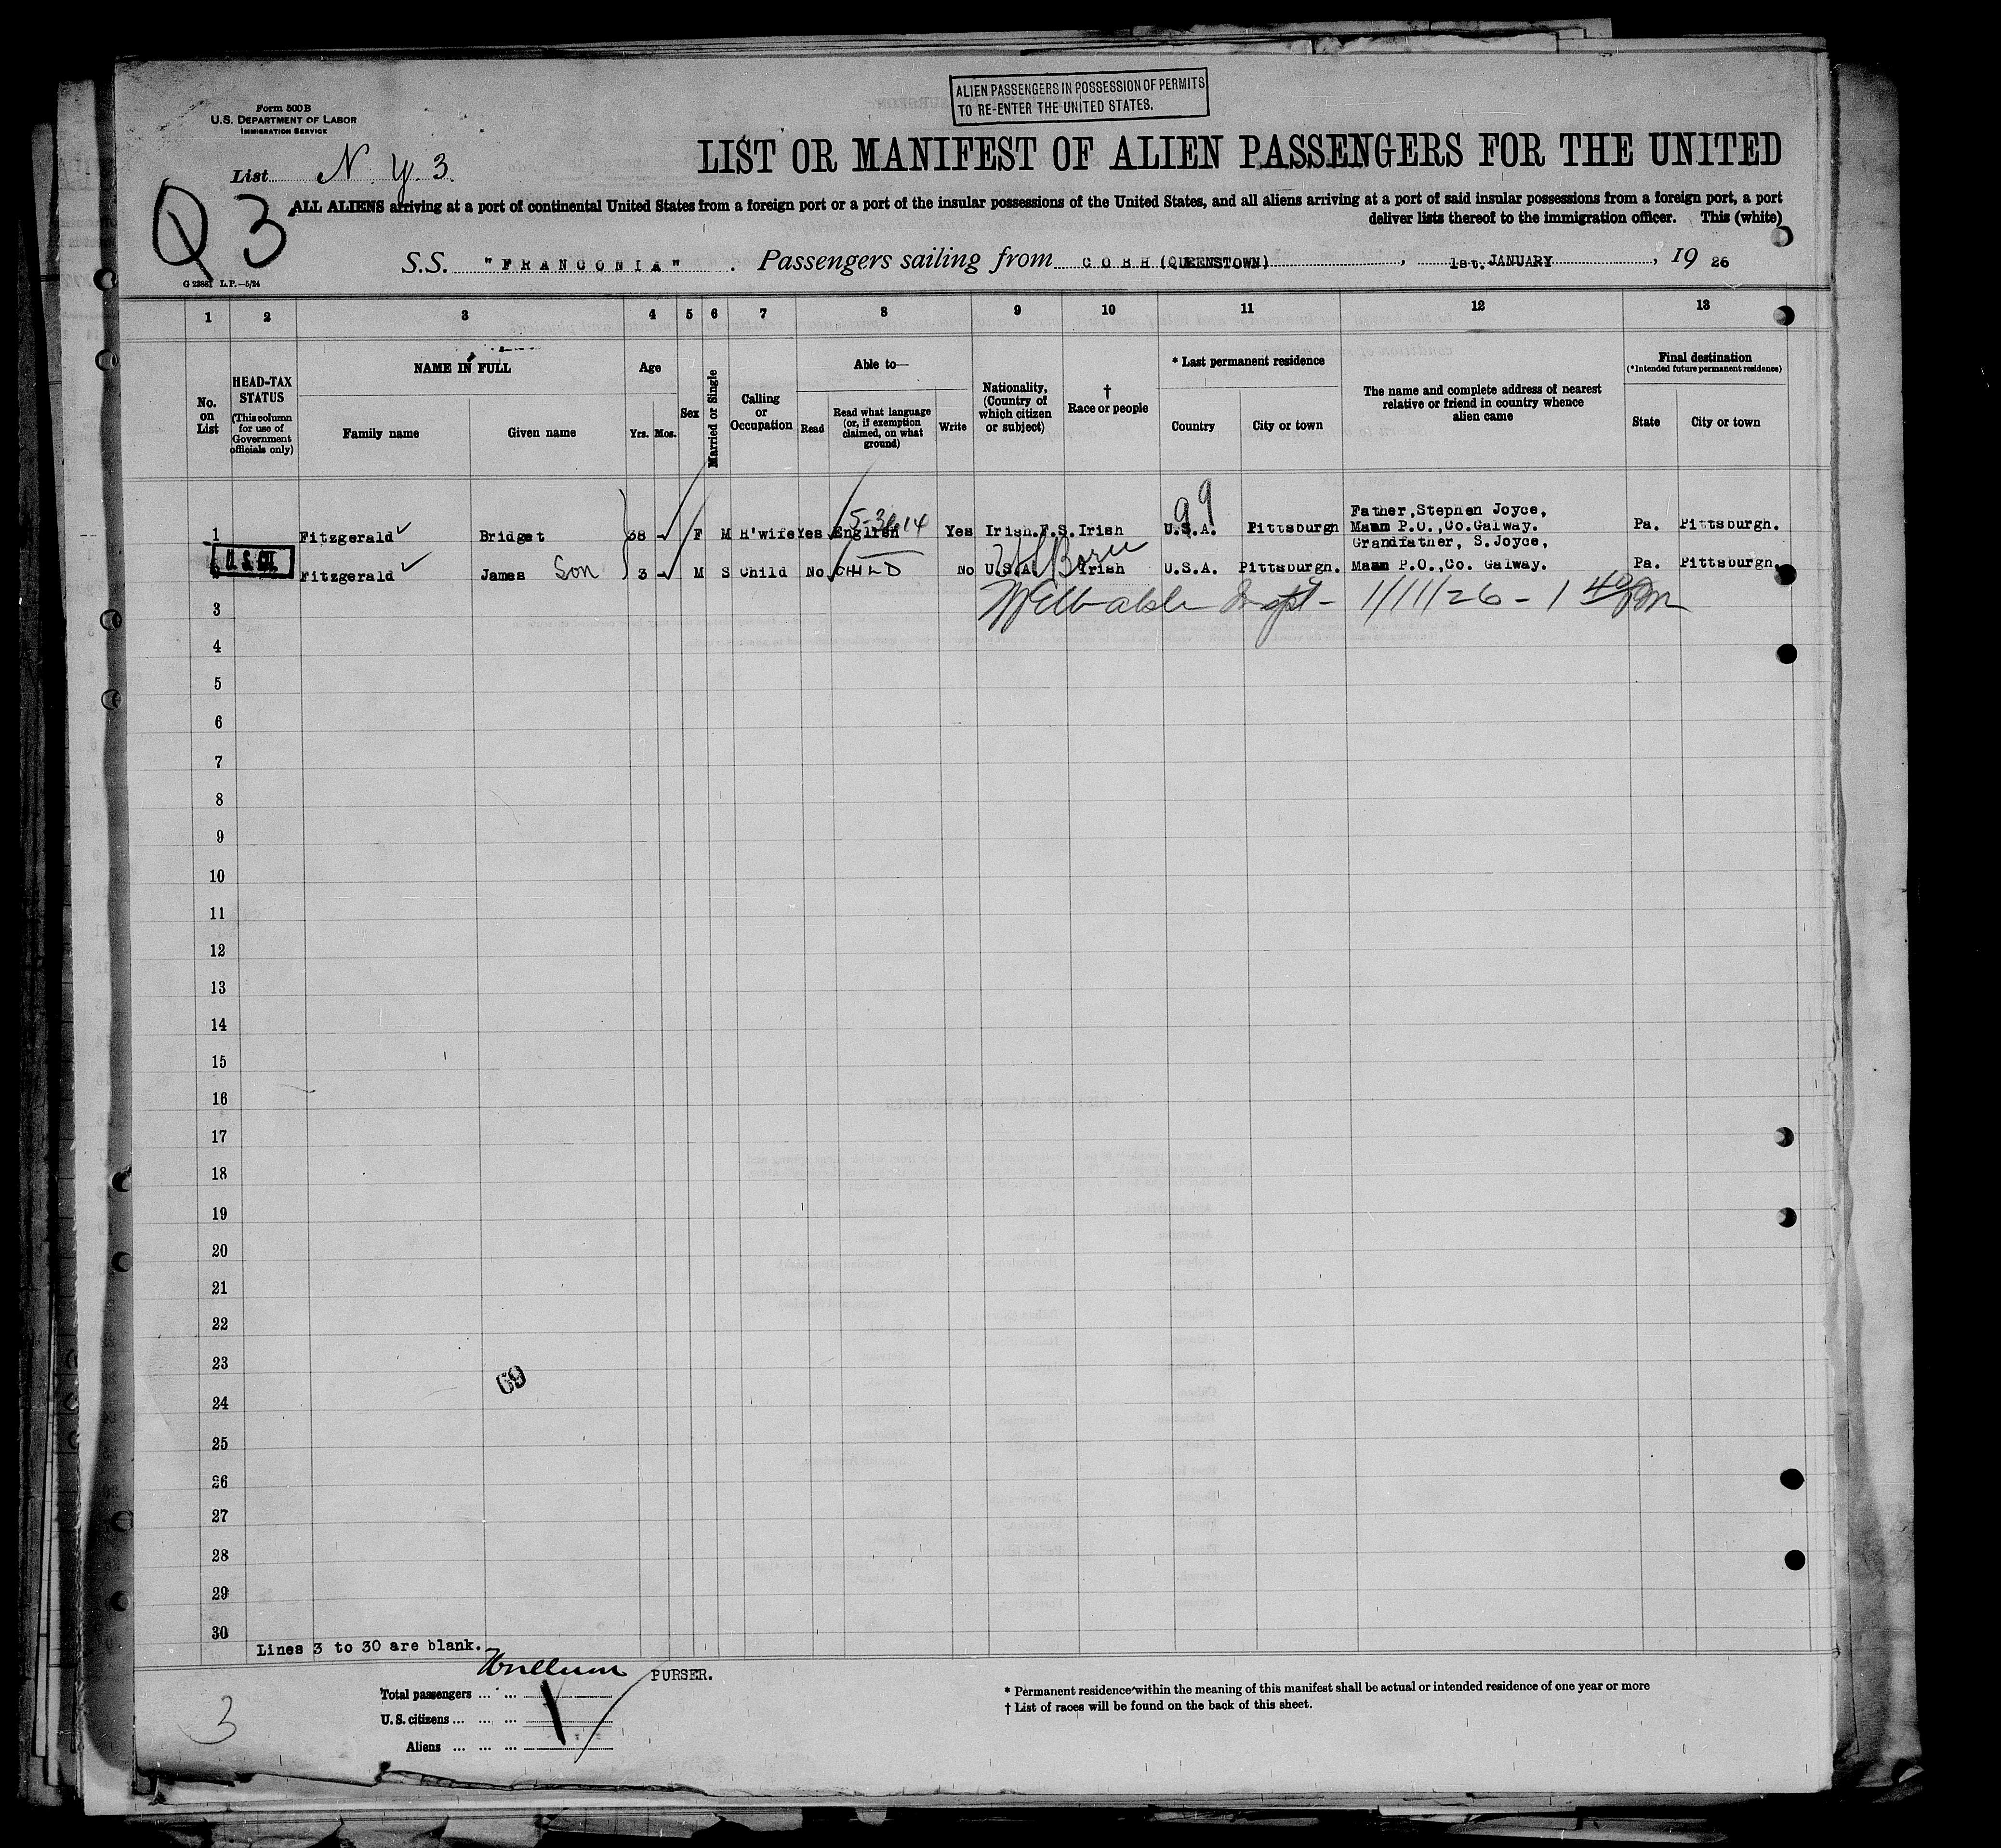 ALIEN PASSENGERS IN POSSESSION OF PERMITS
TO RE-ENTER THE UNITED STATES.
Form 500 B
U.S. DEPARTMENT OF LABOR
IMMIGRATION SERVICE
List N.Y. 3.
Q3
LIST OR MANIFEST OF ALIEN PASSENGERS FOR THE UNITED
ALL ALIENS arriving at a port of continental United States from a foreign port or a port of the insular possessions of the United States, and all aliens arriving at a port of said insular possessions from a foreign port, a port
deliver lists thereof to the immigration officer. This (white)
S.S. "FRANCONIA". Passengers sailing from COBH (QUEENSTOWN), 1st. JANUARY, 19 26
G 23881 L.P.—5/24
1 2 3 4 5 6 7 8 9 10 11 12 13
No. on List
HEAD-TAX STATUS (This column for use of Government officials only)
NAME IN FULL
Family name Given name
Age
Yrs. Mos.
Sex
Married or Single
Calling or Occupation
Able to—
Read
Read what language (or, if exemption claimed, on what ground)
Write
Nationality, (Country of which citizen or subject)
† Race or people
* Last permanent residence
Country City or town
The name and complete address of nearest relative or friend in country whence alien came
Final destination
(*Intended future permanent residence)
State City or town
99
Father, Stephen Joyce,
1 Fitzgerald Bridget 38 - F M H'wife Yes English Yes Irish.F.S. Irish U.S.A. Pittsburgh Maam P.O., Co. Galway. Pa. Pittsburgh.
Grandfather, S. Joyce,
U.S. CIT. Fitzgerald James Son 3 - M S Child No CHILD No U.S.A. Irish U.S.A. Pittsburgh. Maam P.O., Co. Galway. Pa. Pittsburgh.
3 1/11/26 - 1 40 Pm
4
5
6
7
8
9
10
11
12
13
14
15
16
17
18
19
20
21
22
23
69
24
25
26
27
28
29
30
Lines 3 to 30 are blank.
PURSER.
Total passengers ... ...
U.S. citizens ... ... ...
Aliens ... ... ...
3
* Permanent residence within the meaning of this manifest shall be actual or intended residence of one year or more
† List of races will be found on the back of this sheet.